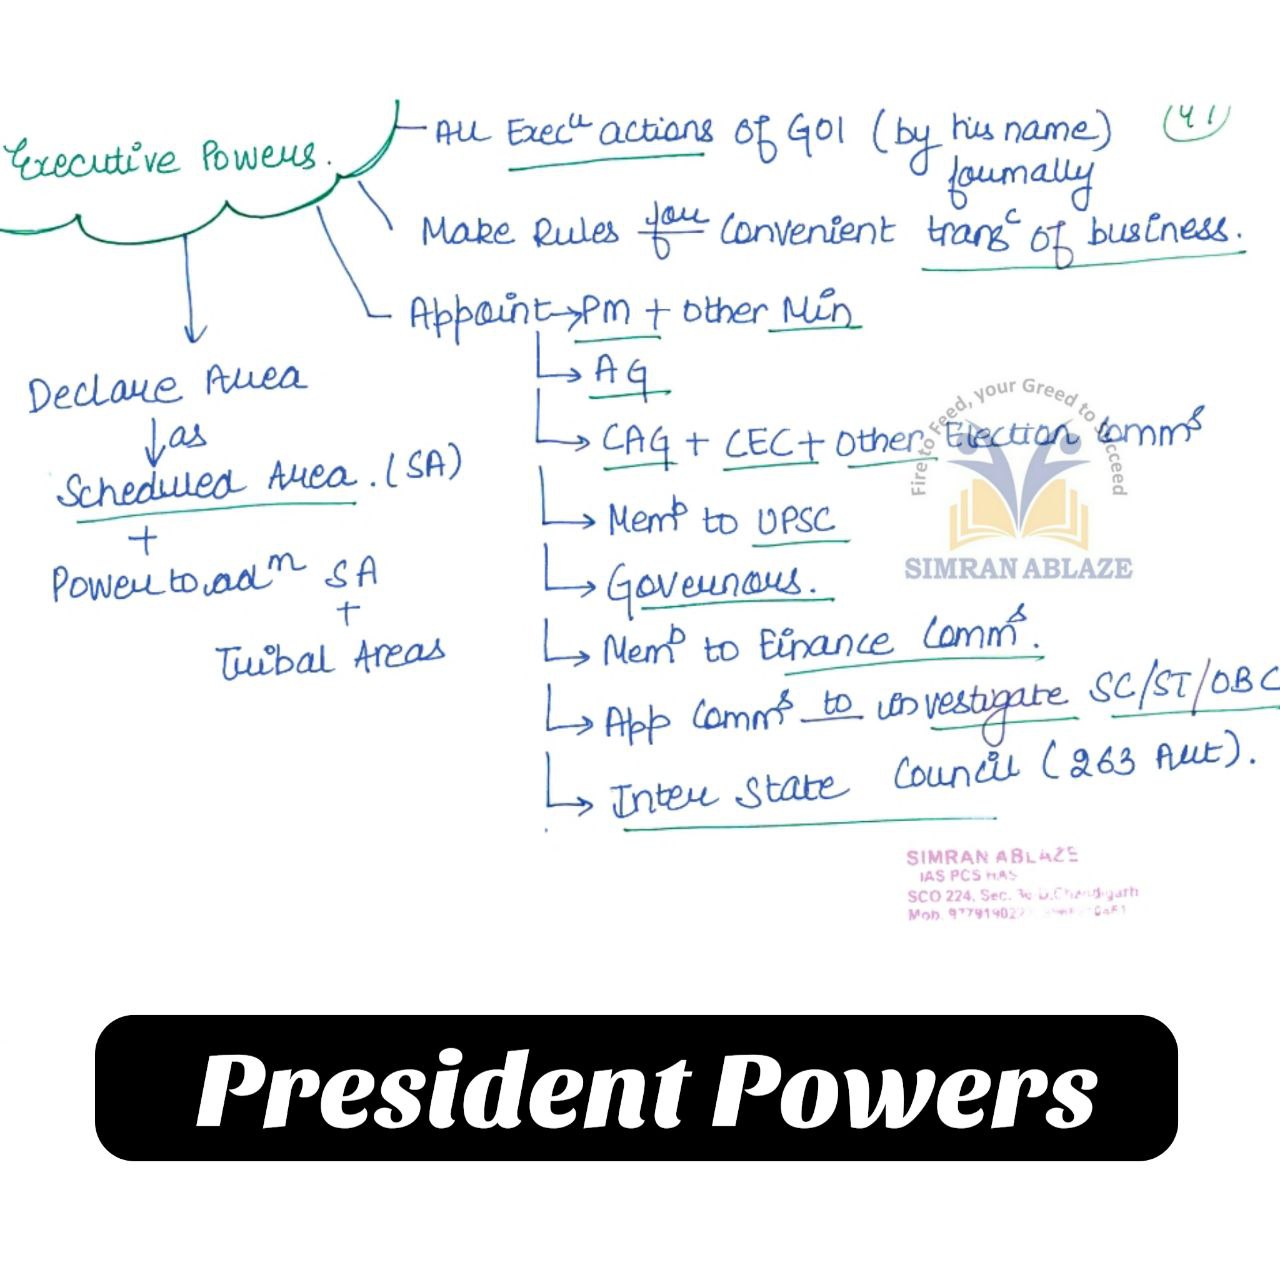 Executive Powers.
All Execu actions of GOI (by his name) formally
41
Make Rules for Convenient transc of business.
Appoint → PM + other Min
AG
CAG + CEC + Other Election Comms
Memb to UPSC
Governors.
Memb to Finance Comms.
App Comms to investigate SC/ST/OBC
Inter State Council (263 Art).
Declare Area
as
Scheduled Area. (SA)
+
Power to adm SA
+
Tribal Areas
Fire to Feed, your Greed to Succeed
SIMRAN ABLAZE
SIMRAN ABLAZE
IAS PCS HAS
SCO 224, Sec. D, Chandigarh
Mob.
President Powers